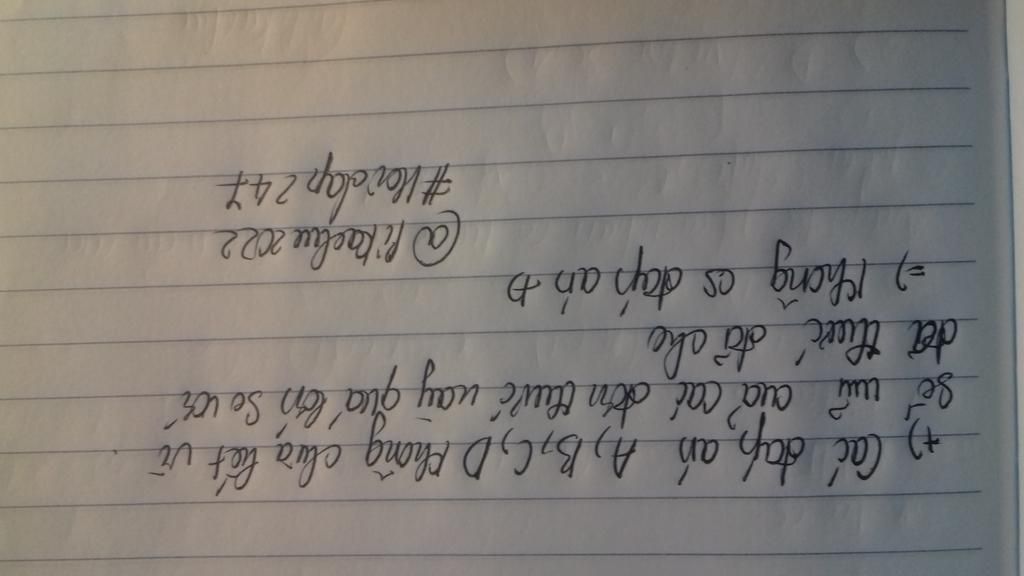 +) Các đáp án A, B, C, D không chia hết vì
số mũ của các đơn thức này quá lớn so với
đa thức đã cho
=) Không có đáp án
@Pikachu2022
#Hoidap247